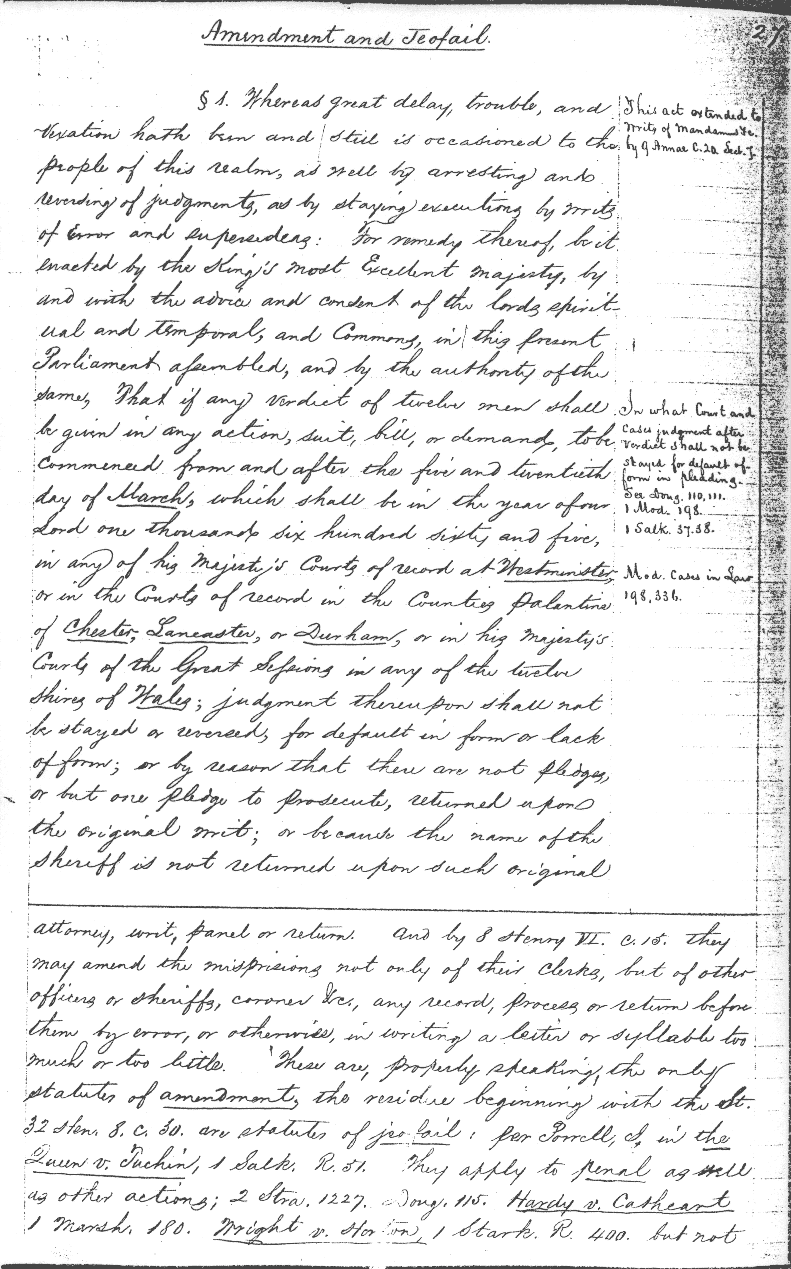 Amendment and Jeofail.
27
§ 1. Whereas great delay, trouble, and
vexation hath been and still is occasioned to the
people of this realm, as well by arresting and
reversing of judgments, as by staying executions by writs
of Error and supersideas: For remedy thereof, be it
enacted by the King's most Excellent majesty, by
and with the advice and consent of the lords spirit-
ual and temporal, and Commons, in this present
Parliament assembled, and by the authority of the
same, That if any verdict of twelve men shall
be given in any action, suit, bill, or demand, to be
commenced from and after the five and twentieth
day of March, which shall be in the year of our
Lord one thousand six hundred sixty and five,
in any of his Majesty's Courts of record at Westminster,
or in the Courts of record in the Counties Palantine
of Chester, Lancaster, or Durham, or in his Majesty's
Courts of the Great Sessions in any of the twelve
shires of Wales; judgment thereupon shall not
be stayed or reversed, for default in form or lack
of form; or by reason that there are not pledges,
or but one pledge to prosecute, returned upon
the original writ; or because the name of the
sheriff is not returned upon such original
This act extended to
writs of Mandamus &c.
by 9 Annae C. 20. Sect. 7.
In what Court and
cases judgment after
verdict shall not be
stayed for default of
form in pleading.
See Doug. 110, 111.
1 Mod. 198.
1 Salk. 37. 38.
Mod. Cases in Law
198, 336.
attorney, writ, panel or return. And by 8 Henry VI. c. 15. they
may amend the misprisions not only of their clerks, but of other
officers or sheriffs, coroner &c., any record, process or return before
them by error, or otherwise, in writing a letter or syllable too
much or too little. These are, properly speaking, the only
statutes of amendment, the residue beginning with the St.
32 Hen. 8. c. 30. are statutes of jeofail: per Powell, J, in the
Queen v. Tuchin, 1 Salk. R. 51. They apply to penal as well
as other actions; 2 Stra. 1227. Doug. 115. Hardy v. Cathcart
1 Marsh. 180. Wright v. Horton, 1 Stark. R. 400. but not